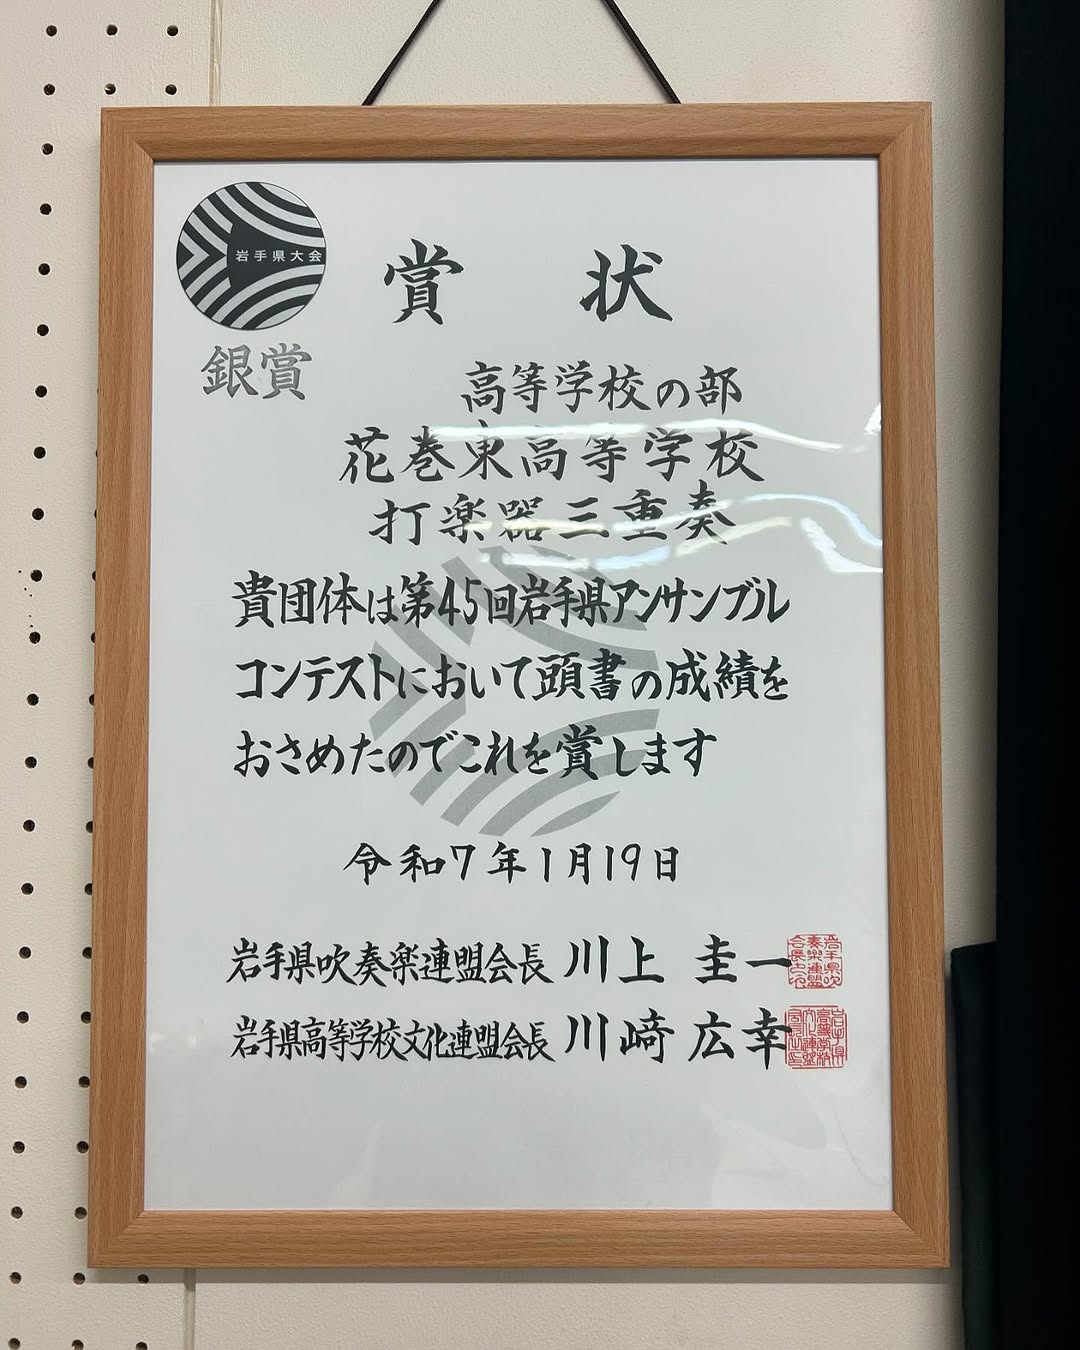 岩手県大会
賞状
銀賞
高等学校の部
花巻東高等学校
打楽器三重奏
貴団体は第45回岩手県アンサンブル
コンテストにおいて頭書の成績を
おさめたのでこれを賞します
令和7年1月19日
岩手県吹奏楽連盟会長 川上 圭一
岩手県高等学校文化連盟会長 川﨑 広幸